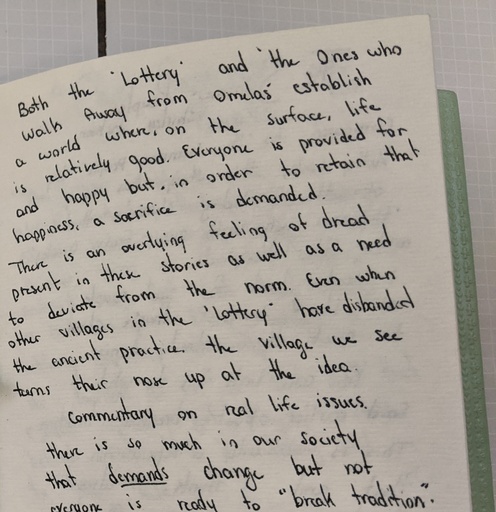 Both the 'Lottery' and 'the Ones who
walk Away from Omelas' establish
a world where, on the surface, life
is relatively good. Everyone is provided for
and happy but, in order to retain that
happiness, a sacrifice is demanded.
There is an overlying feeling of dread
present in these stories as well as a need
to deviate from the norm. Even when
other villages in the 'Lottery' have disbanded
the ancient practice, the village we see
turns their nose up at the idea.
Commentary on real life issues.
there is so much in our society
that demands change but not
everyone is ready to "break tradition".